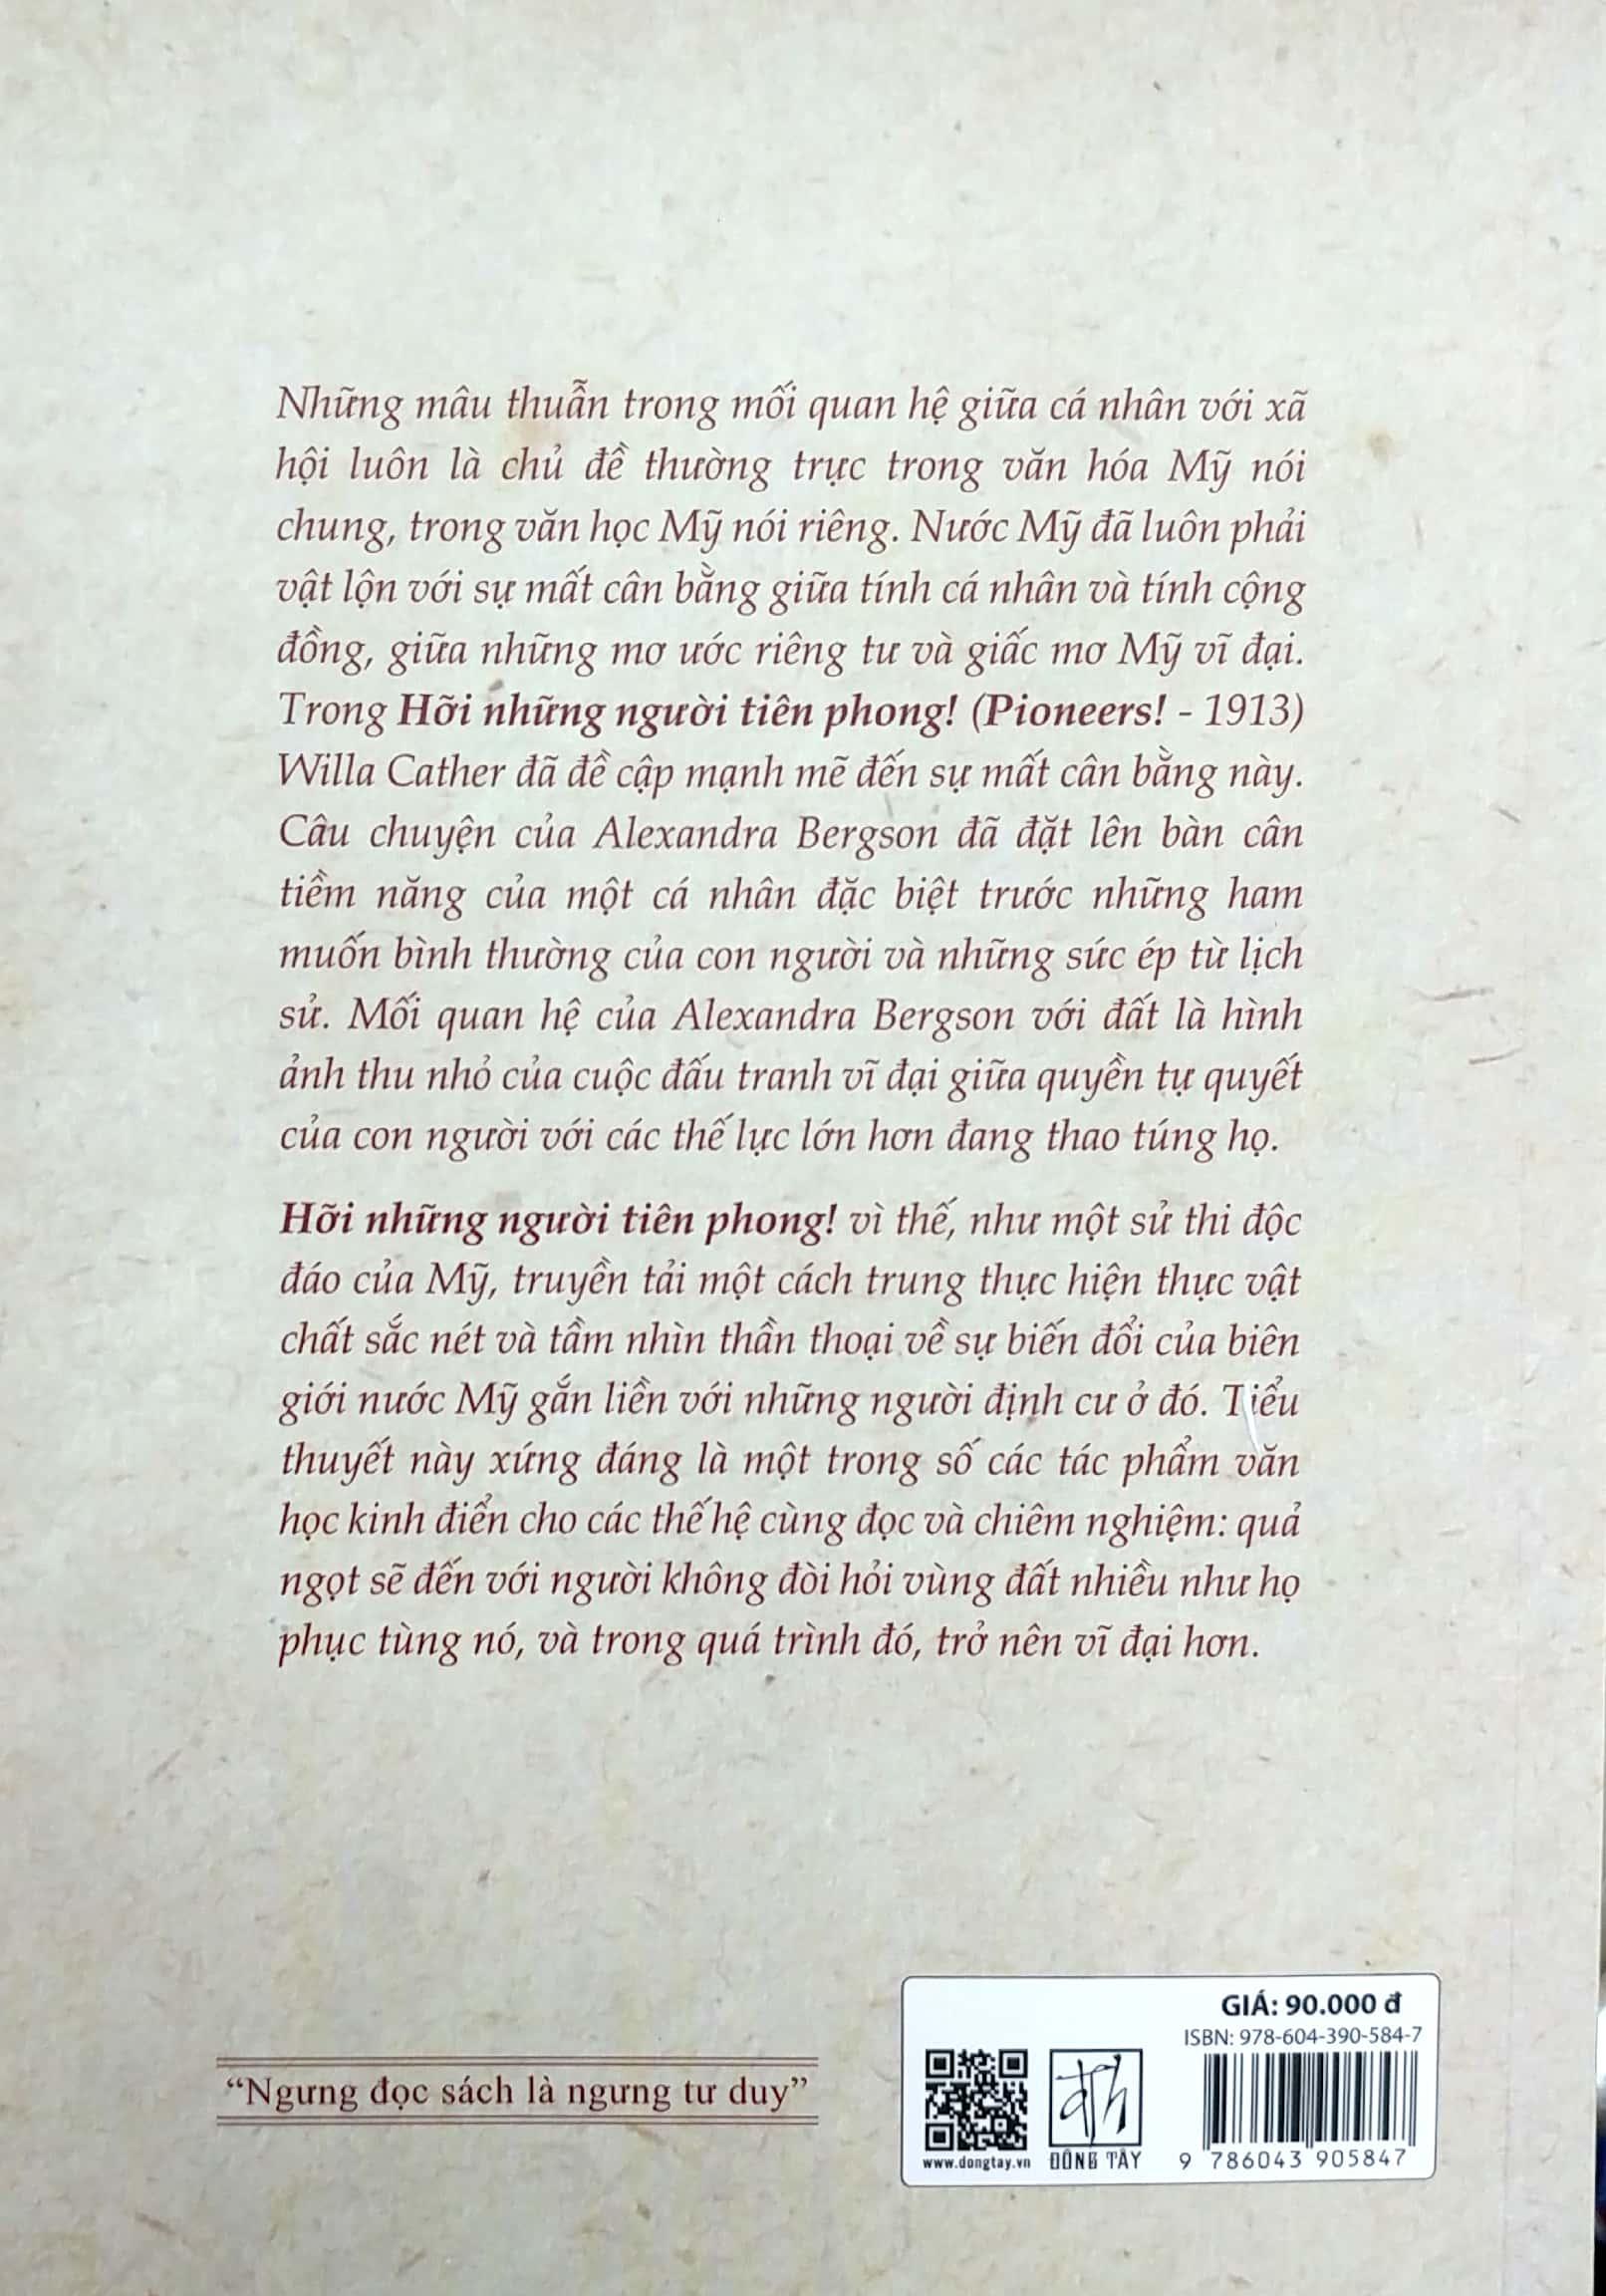 Những mâu thuẫn trong mối quan hệ giữa cá nhân với xã
hội luôn là chủ đề thường trực trong văn hóa Mỹ nói
chung, trong văn học Mỹ nói riêng. Nước Mỹ đã luôn phải
vật lộn với sự mất cân bằng giữa tính cá nhân và tính cộng
đồng, giữa những mơ ước riêng tư và giấc mơ Mỹ vĩ đại.
Trong Hỡi những người tiên phong! (Pioneers! - 1913)
Willa Cather đã đề cập mạnh mẽ đến sự mất cân bằng này.
Câu chuyện của Alexandra Bergson đã đặt lên bàn cân
tiềm năng của một cá nhân đặc biệt trước những ham
muốn bình thường của con người và những sức ép từ lịch
sử. Mối quan hệ của Alexandra Bergson với đất là hình
ảnh thu nhỏ của cuộc đấu tranh vĩ đại giữa quyền tự quyết
của con người với các thế lực lớn hơn đang thao túng họ.
Hỡi những người tiên phong! vì thế, như một sử thi độc
đáo của Mỹ, truyền tải một cách trung thực hiện thực vật
chất sắc nét và tầm nhìn thần thoại về sự biến đổi của biên
giới nước Mỹ gắn liền với những người định cư ở đó. Tiểu
thuyết này xứng đáng là một trong số các tác phẩm văn
học kinh điển cho các thế hệ cùng đọc và chiêm nghiệm: quả
ngọt sẽ đến với người không đòi hỏi vùng đất nhiều như họ
phục tùng nó, và trong quá trình đó, trở nên vĩ đại hơn.
“Ngưng đọc sách là ngưng tư duy”
GIÁ: 90.000 đ
ISBN: 978-604-390-584-7
www.dongtay.vn
ĐÔNG TÂY
9 786043 905847